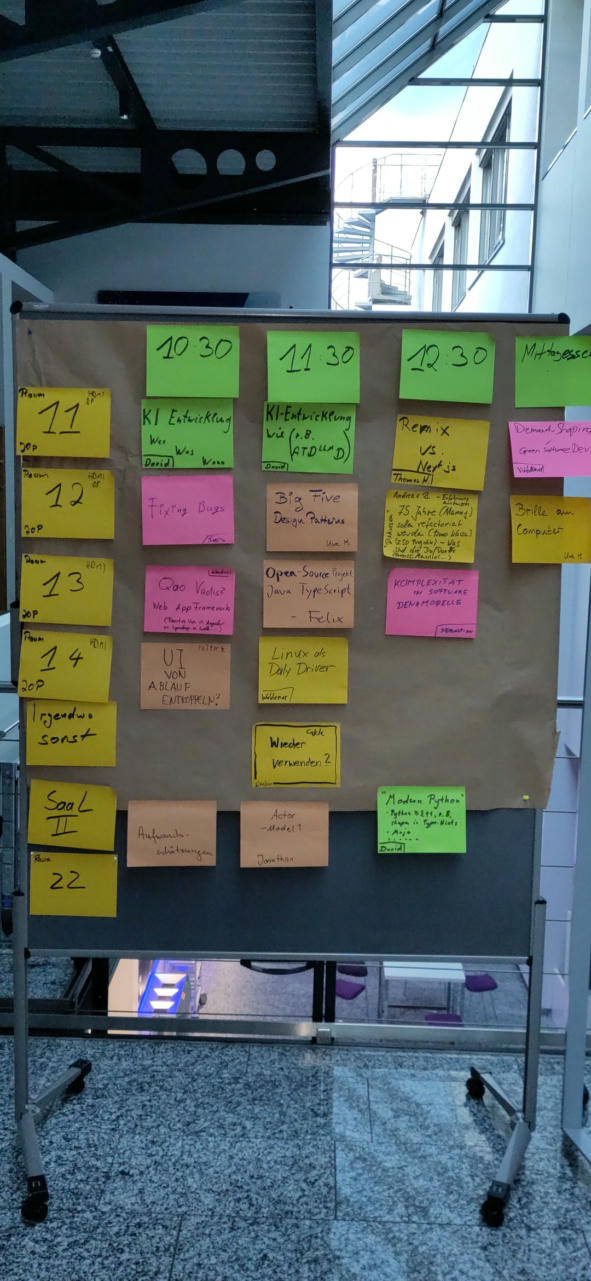 10:30
11:30
12:30
Mittagesse
Raum
HDMI
11
20P
KI Entwicklung
Wer
Was
Wann
David
KI-Entwicklung
wie (z.B.
ATDLLMD)
David
Remix
vs.
Next js
Thomas M
Demand-Shaping
Green Software Dev
Raum
HDMI
12
20P
Fixing Bugs
Big Five
Design Patterns
Uwe M.
75 Jahre (Manny)
soll refactorisiert
werden
Was
Brille am
Computer
Uwe M.
Raum
HDMI
13
20P
Quo Vadis?
Web App Framework
Open-Source Projekt
Java TypeScript
- Felix
KOMPLEXITÄT
IN SOFTWARE
DENKMODELLE
SEBASTIAN
Raum
HDMI
14
20P
UI
VON
ABLAUF
ENTKOPPELN?
Linux als
Daily Driver
Waldemar
Irgendwo
sonst
Wieder
verwenden?
SaaL
II
Aufwands-
schätzungen
Actor
-Model?
Jonathan
"Modern Python"
• Python 3.11, z.B.
shapes in Type-Hints
• Mojo
David
Raum
22